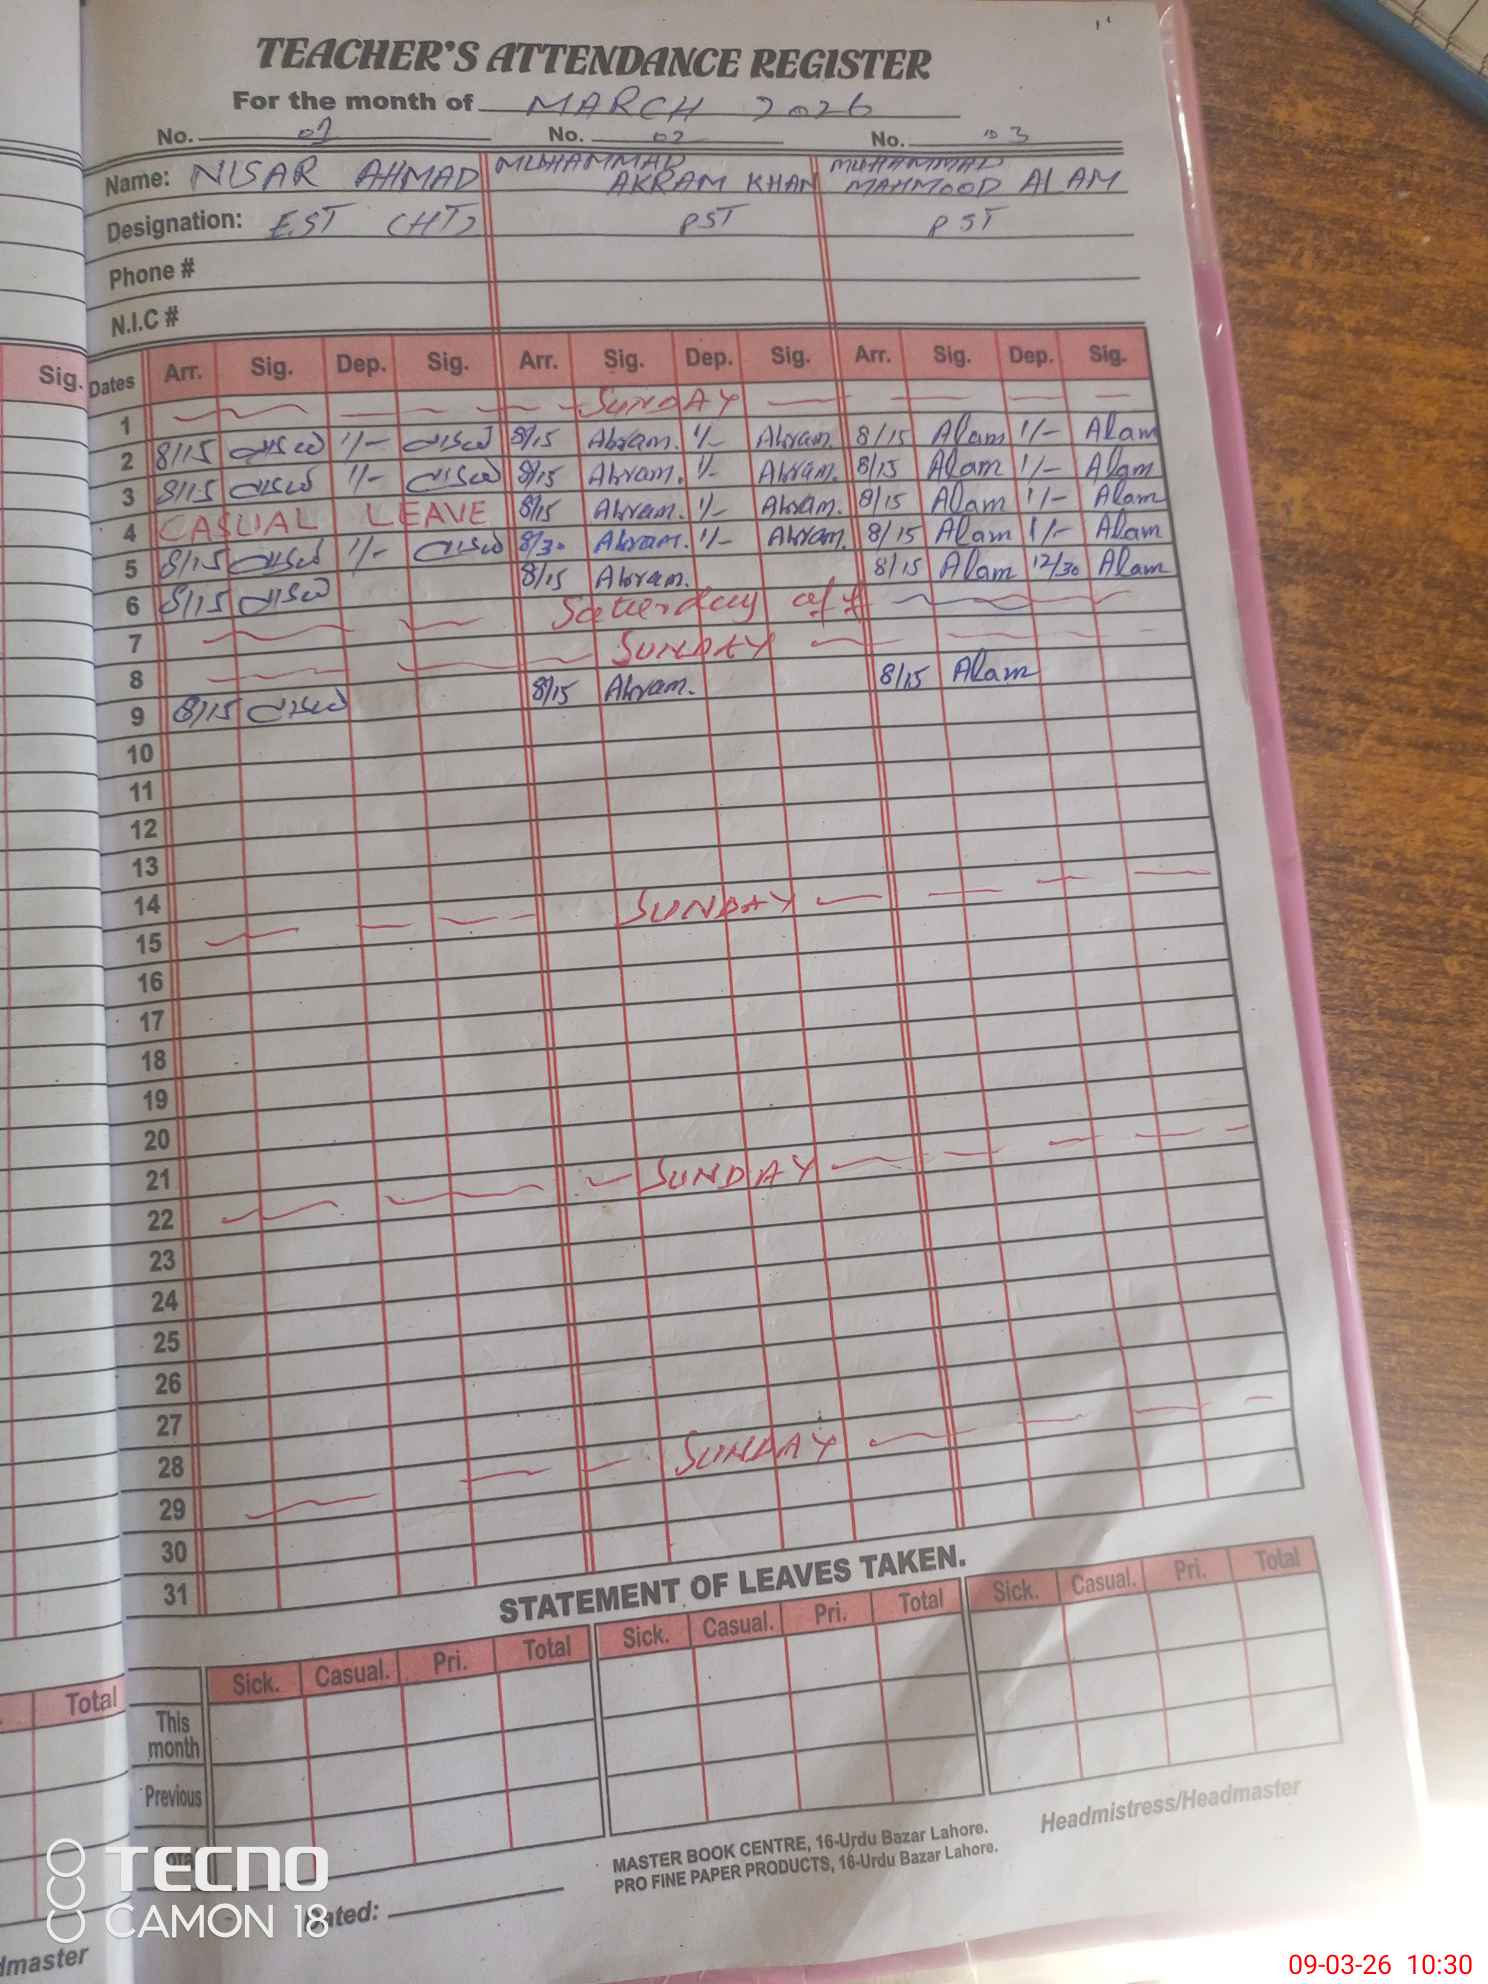 TEACHER'S ATTENDANCE REGISTER
For the month of MARCH 2026
No. 01 No. 02 No. 03
Name: NISAR AHMAD MUHAMMAD AKRAM KHAN MUHAMMAD MAHMOOD ALAM
Designation: EST (HT) PST PST
Phone #
N.I.C #
Sig. Dates Arr. Sig. Dep. Sig. Arr. Sig. Dep. Sig. Arr. Sig. Dep. Sig.
1 SUNDAY
2 8/15 1/- 8/15 Akram. 1/- Akram. 8/15 Alam 1/- Alam
3 8/15 1/- 8/15 Akram. 1/- Akram. 8/15 Alam 1/- Alam
4 CASUAL LEAVE 8/15 Akram. 1/- Akram. 8/15 Alam 1/- Alam
5 8/15 1/- 8/30 Akram. 1/- Akram. 8/15 Alam 1/- Alam
6 8/15 8/15 Akram. 8/15 Alam 12/30 Alam
7 Saturday off
8 SUNDAY
9 8/15 8/15 Akram. 8/15 Alam
10
11
12
13
14
15 SUNDAY
16
17
18
19
20
21
22 SUNDAY
23
24
25
26
27
28
29 SUNDAY
30
31
STATEMENT OF LEAVES TAKEN.
Total Sick. Casual. Pri. Total Sick. Casual. Pri. Total Sick. Casual. Pri. Total
This month
Previous
Headmistress/Headmaster
MASTER BOOK CENTRE, 16-Urdu Bazar Lahore.
PRO FINE PAPER PRODUCTS, 16-Urdu Bazar Lahore.
Dated:
TECNO
CAMON 18
09-03-26 10:30